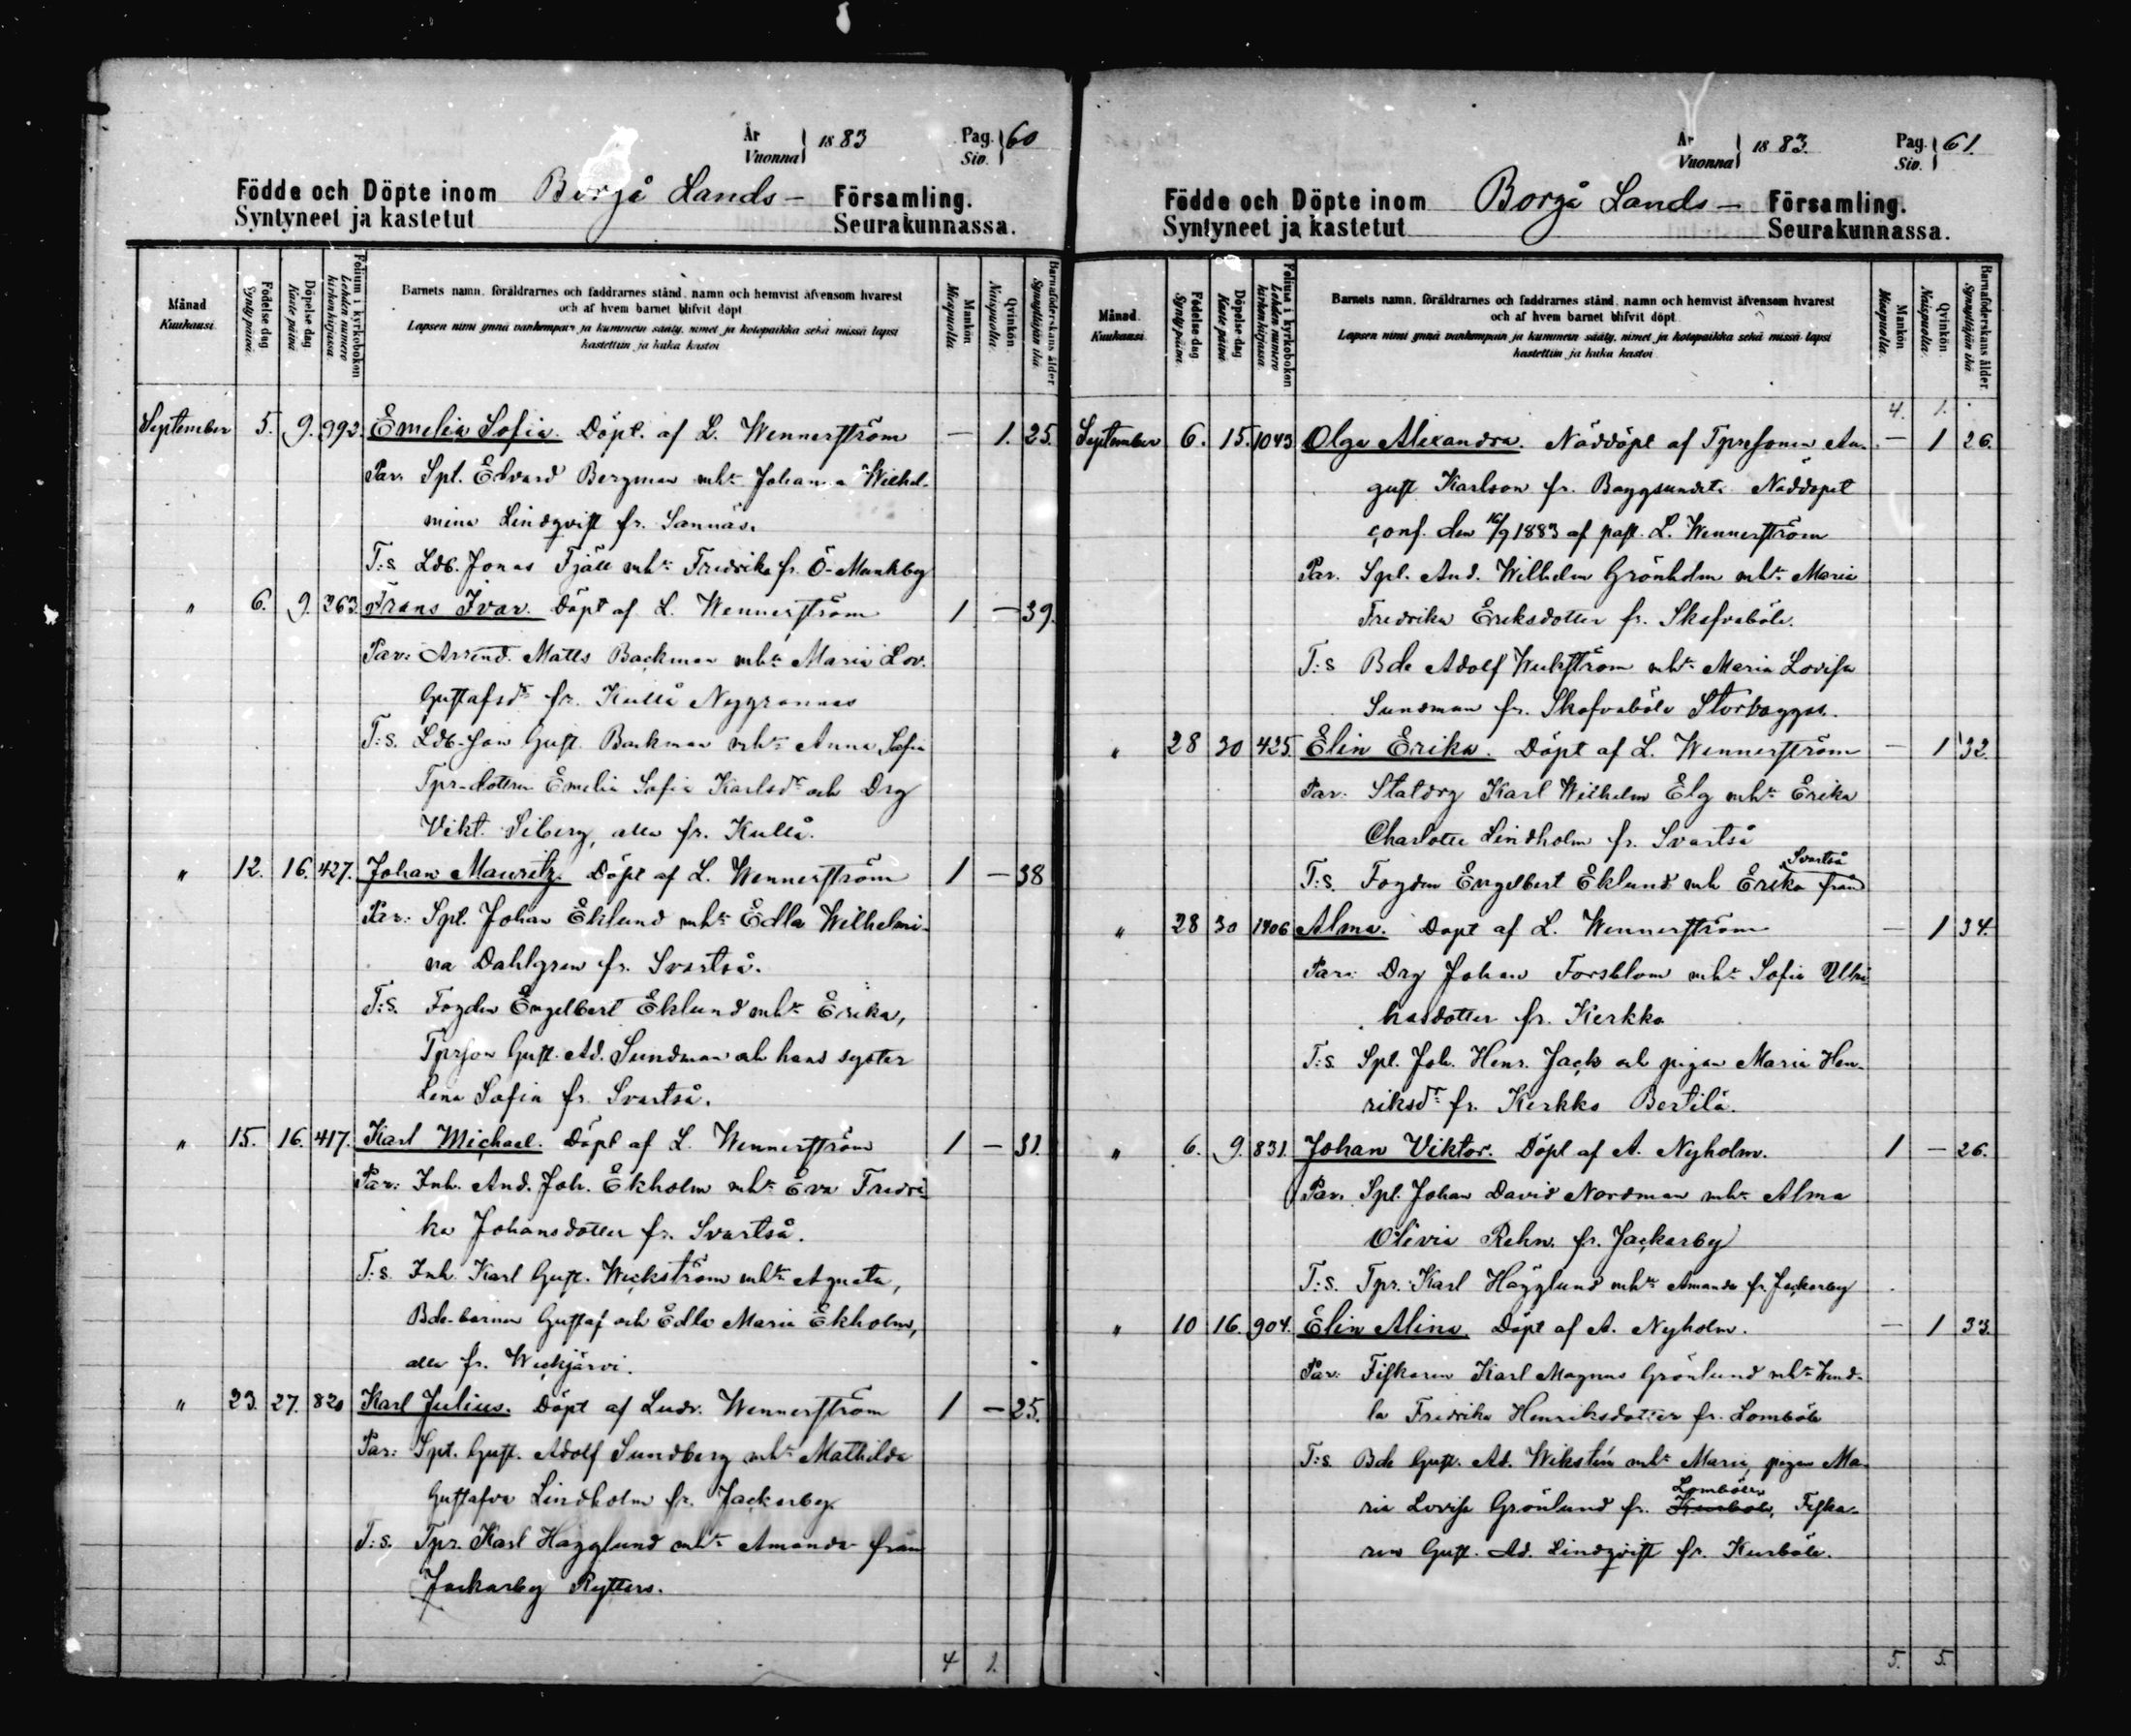 År
Vuonna
1883
Pag.
Siv.
60
Födde och Döpte inom Borgå Lands- Församling.
Syntyneet ja kastetut Seurakunnassa.
Månad
Kuukausi
Födelse-dag
Synty päivä.
Döpelse-dag
Kaste päivä
Folium i kyrkoboken
Lehden numero kirkonkirjassa
Barnets namn, föräldrarnes och faddrarnes stånd, namn och hemvist äfvensom hvarest
och af hvem barnet blifvit döpt
Lapsen nimi ynnä vanhempain ja kummein sääty, nimet ja kotopaikka sekä missä lapsi
kastettiin ja kuka kastoi
Mankön
Miespuolta
Qvinkön
Naispuolta.
Barnaföderskans ålder
Synnyttäjän ikä
September 5. 9. 992. Emelia Sofia. Döpt. af L. Wennerström — 1. 25.
Par. Spl. Edvard Bergman mhr Johanna Wilhel-
mina Lindqvist fr. Sannäs.
T:s Ldb. Jonas Fjäll mhr Fredrika fr. Ö-Munkby
" 6. 9. 363. Frans Ivar. Döpt af L. Wennerström 1 — 39.
Par: Arrend. Matts Backman mhr Maria Lov.
Gustafsdr fr. Kullå Nygrannas
T:s. Ldb-son Gust. Backman mhr Anna Sofia
Tpr-dottren Emelia Sofia Karlsdr och Drg
Vikt. Siberg, alla fr. Kullå.
" 12. 16. 427. Johan Mauritz. Döpt af L. Wennerström 1 — 38
Par: Spl. Johan Eklund mhr Edla Wilhelmi-
na Dahlgren fr. Svartså.
T:s. Fogden Engelbert Eklund mhr Erika,
Tprson Gust. Ad. Sundman och hans syster
Lena Sofia fr. Svartså.
" 15. 16. 417. Karl Michael. Döpt af L. Wennerström 1 — 31.
Par: Inh. And. Joh. Ekholm mhr Eva Fredri-
ka Johansdotter fr. Svartså.
T:s. Inh. Karl Gust. Wickström mhr Agneta,
Bde-barnen Gustaf och Edla Maria Ekholm,
alla fr. Wickjärvi.
" 23. 27. 820 Karl Julius. Döpt af Ludv. Wennerström 1 — 25.
Par: Spl. Gust. Adolf Sundberg mhr Mathilda
Gustafva Lindholm fr. Jackarby.
T:s. Tpr. Karl Hägglund mhr Amanda från
Jackarby Rytters.
4 1.
År
Vuonna
1883.
Pag.
Siv.
61.
Födde och Döpte inom Borgå Lands- Församling.
Syntyneet ja kastetut Seurakunnassa.
Månad
Kuukausi
Födelse-dag
Synty päivä.
Döpelse-dag
Kaste päivä
Folium i kyrkoboken
Lehden numero kirkonkirjassa
Barnets namn, föräldrarnes och faddrarnes stånd, namn och hemvist äfvensom hvarest
och af hvem barnet blifvit döpt
Lapsen nimi ynnä vanhempain ja kummein sääty, nimet ja kotopaikka sekä missä lapsi
kastettiin ja kuka kastoi
Mankön
Miespuolta.
Qvinkön
Naispuolta.
Barnaföderskans ålder.
Synnyttäjän ikä.
4. 1.
September 6. 15. 1043 Olga Alexandra. Nöddöpt af Tprsonen Au- — 1 26.
gust Karlson fr. Baggsundet. Nöddopet
conf. den 16/9 1883 af past. L. Wennerström
Par. Spl. And. Wilhelm Grönholm mhr Maria
Fredrika Eriksdotter fr. Skafvaböle.
T:s Bde Adolf Wickström mhr Maria Lovisa
Sundman fr. Skafvaböle Storbaggas.
" 28 30 425. Elin Erika. Döpt af L. Wennerström — 1 32.
Par. Statdrg Karl Wilhelm Elg mhr Erika
Charlotta Lindholm fr. Svartså
T:s. Fogden Engelbert Eklund mh Erika från Svartså
" 28 30 1406 Alma. Döpt af L. Wennerström — 1 34.
Par: Drg Johan Forsblom mhr Sofia Ulri-
kasdotter fr. Kerkko
T:s. Spl. Joh. Henr. Jack och pigan Maria Hen-
riksdr fr. Kerkko Bertilä.
" 6. 9. 831. Johan Viktor. Döpt af A. Nyholm. 1 — 26.
Par. Spl. Johan David Nordman mhr Alma
Olivia Rehn. fr. Jackarby
T:s. Tpr. Karl Hägglund mhr Amanda fr. Jackarby
" 10 16. 904. Elin Alina. Döpt af A. Nyholm. — 1 33.
Par: Fiskaren Karl Magnus Grönlund mhr Vend-
la Fredrika Henriksdotter fr. Lomböle
T:s. Bde Gust. Ad. Wikstén mhr Maria, pigan Ma-
ria Lovisa Grönlund fr. Lomböle, Fiska-
ren Gust. Ad. Lindqvist fr. Kurböle.
5. 5.